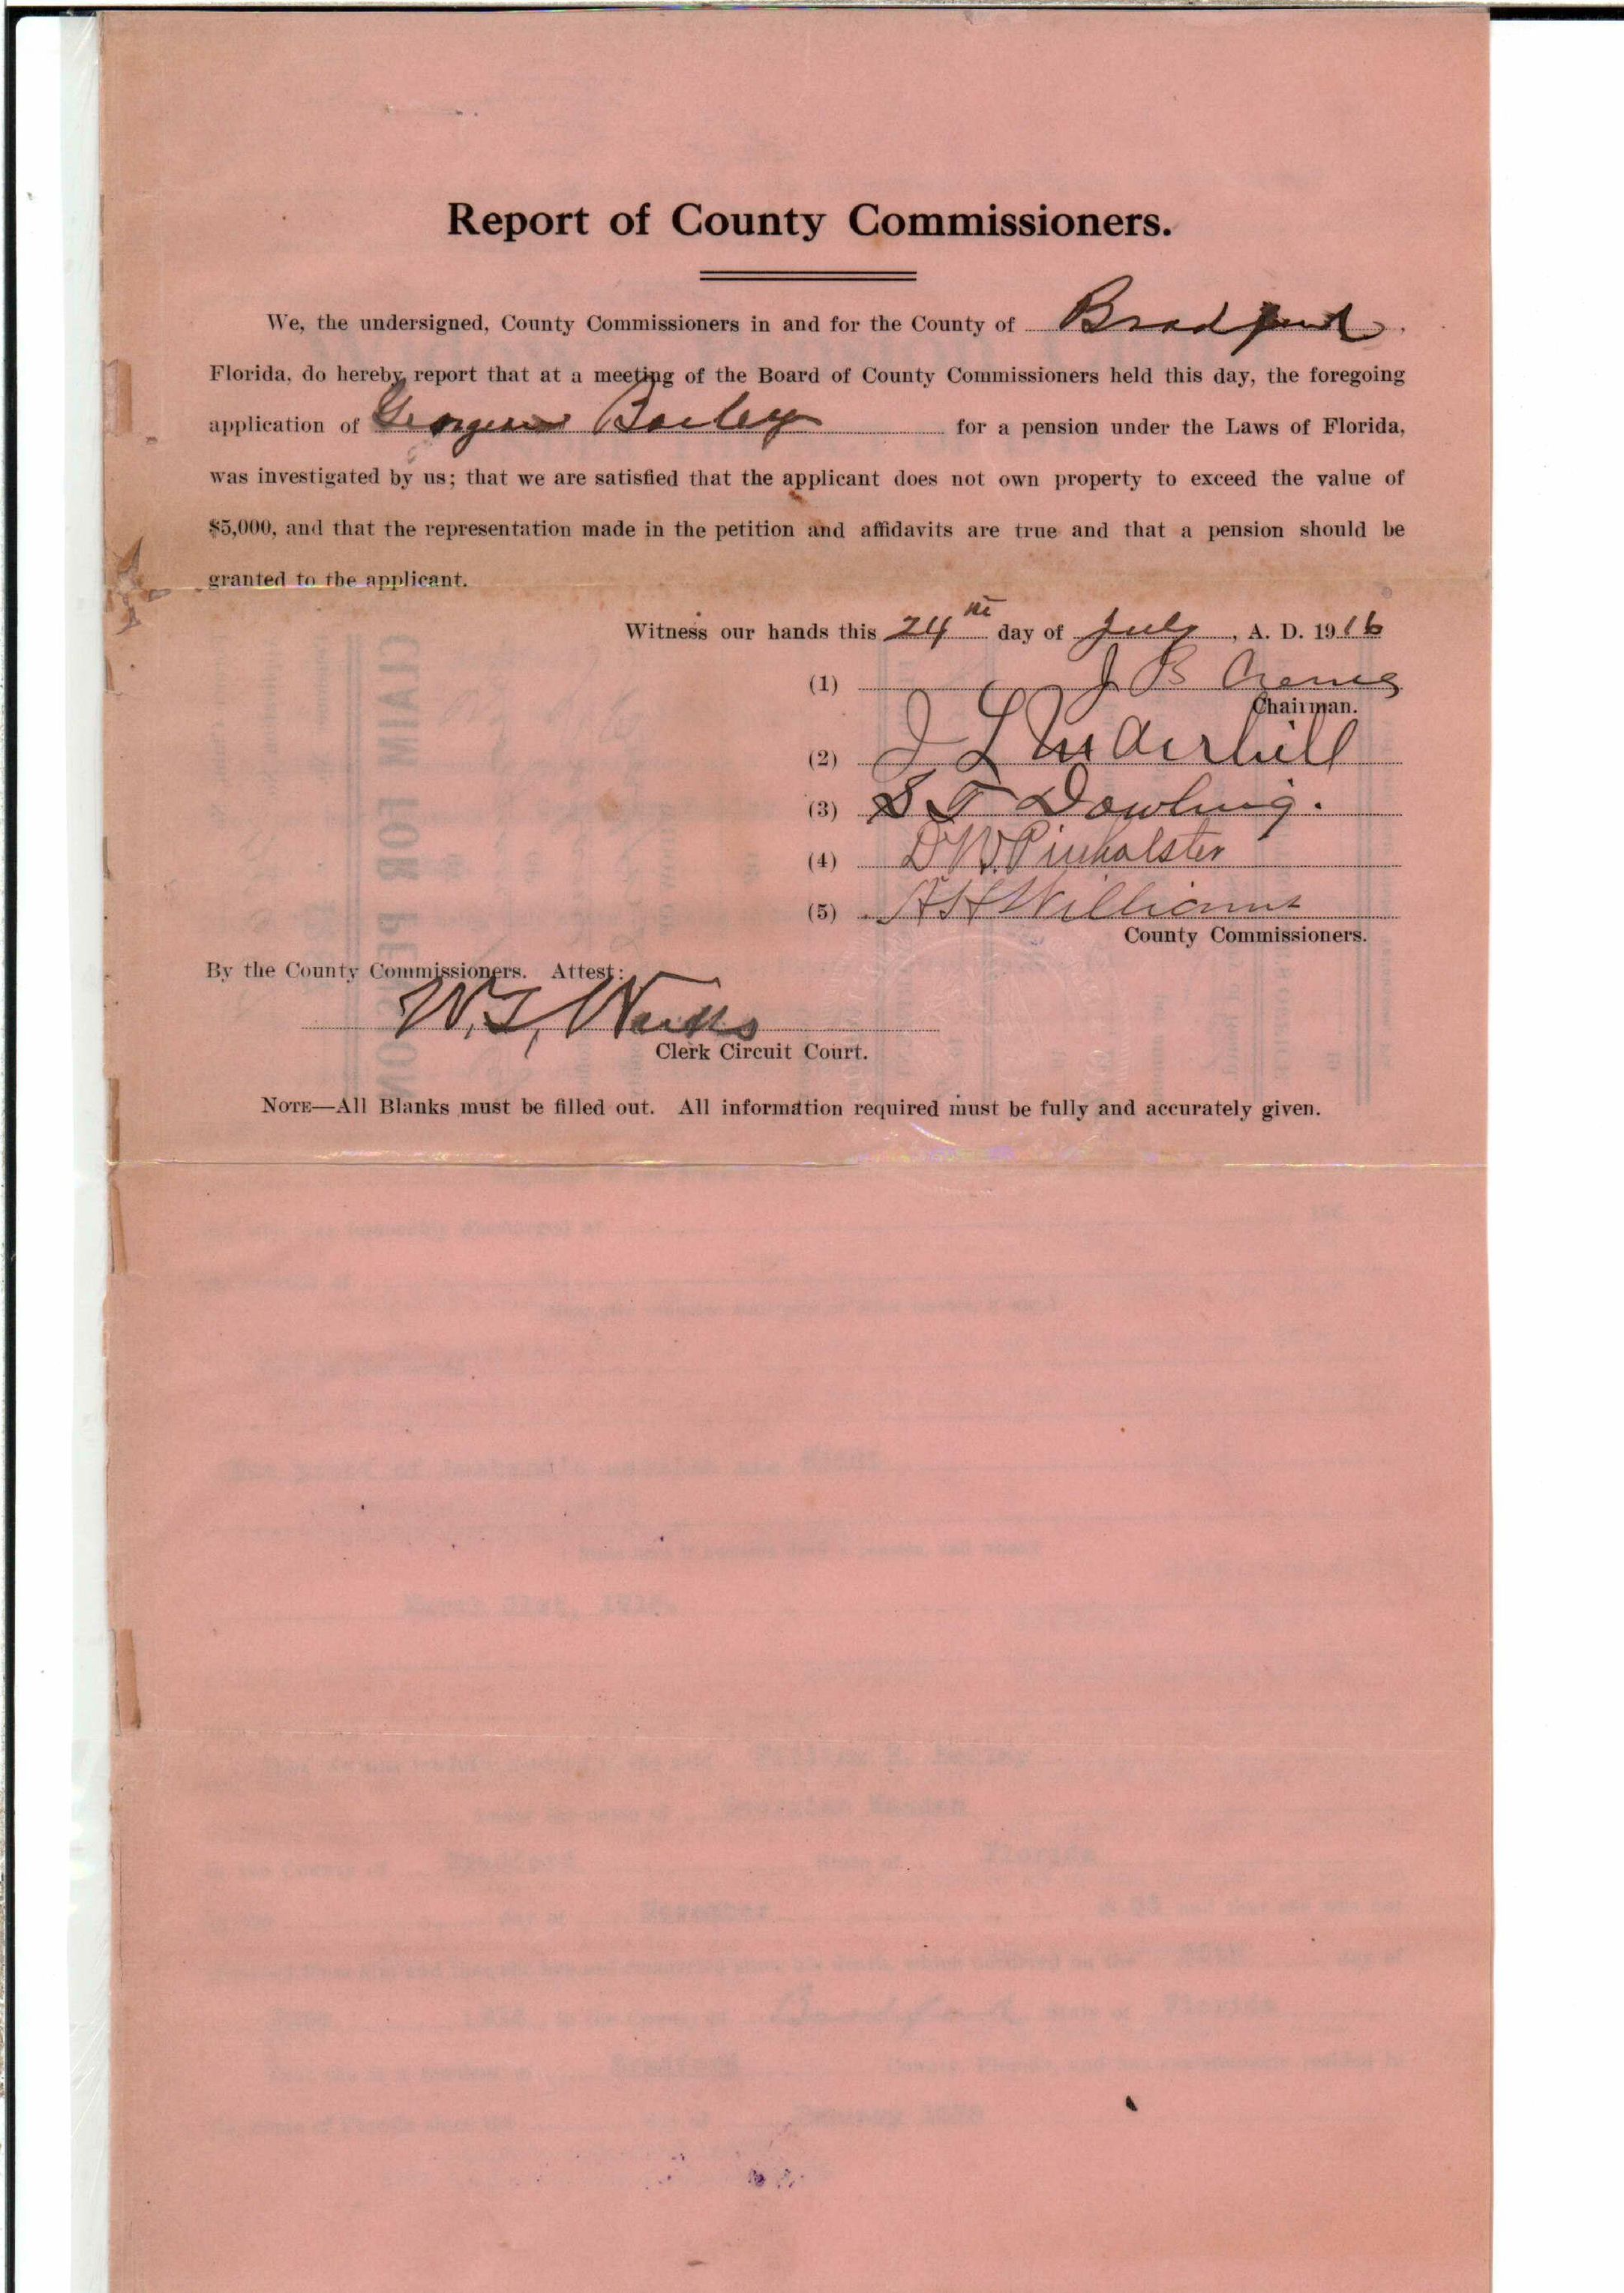 Report of County Commissioners.
We, the undersigned, County Commissioners in and for the County of Bradford,
Florida, do hereby report that at a meeting of the Board of County Commissioners held this day, the foregoing
application of Georgian Bailey for a pension under the Laws of Florida,
was investigated by us; that we are satisfied that the applicant does not own property to exceed the value of
$5,000, and that the representation made in the petition and affidavits are true and that a pension should be
granted to the applicant.
Witness our hands this 24th day of July, A. D. 1916
(1) J B
Chairman.
(2) J L Underhill
(3) S T Dowling.
(4) D W. Pinholster
(5) A H Williams
County Commissioners.
By the County Commissioners. Attest:
W. T. Weeks
Clerk Circuit Court.
NOTE—All Blanks must be filled out. All information required must be fully and accurately given.